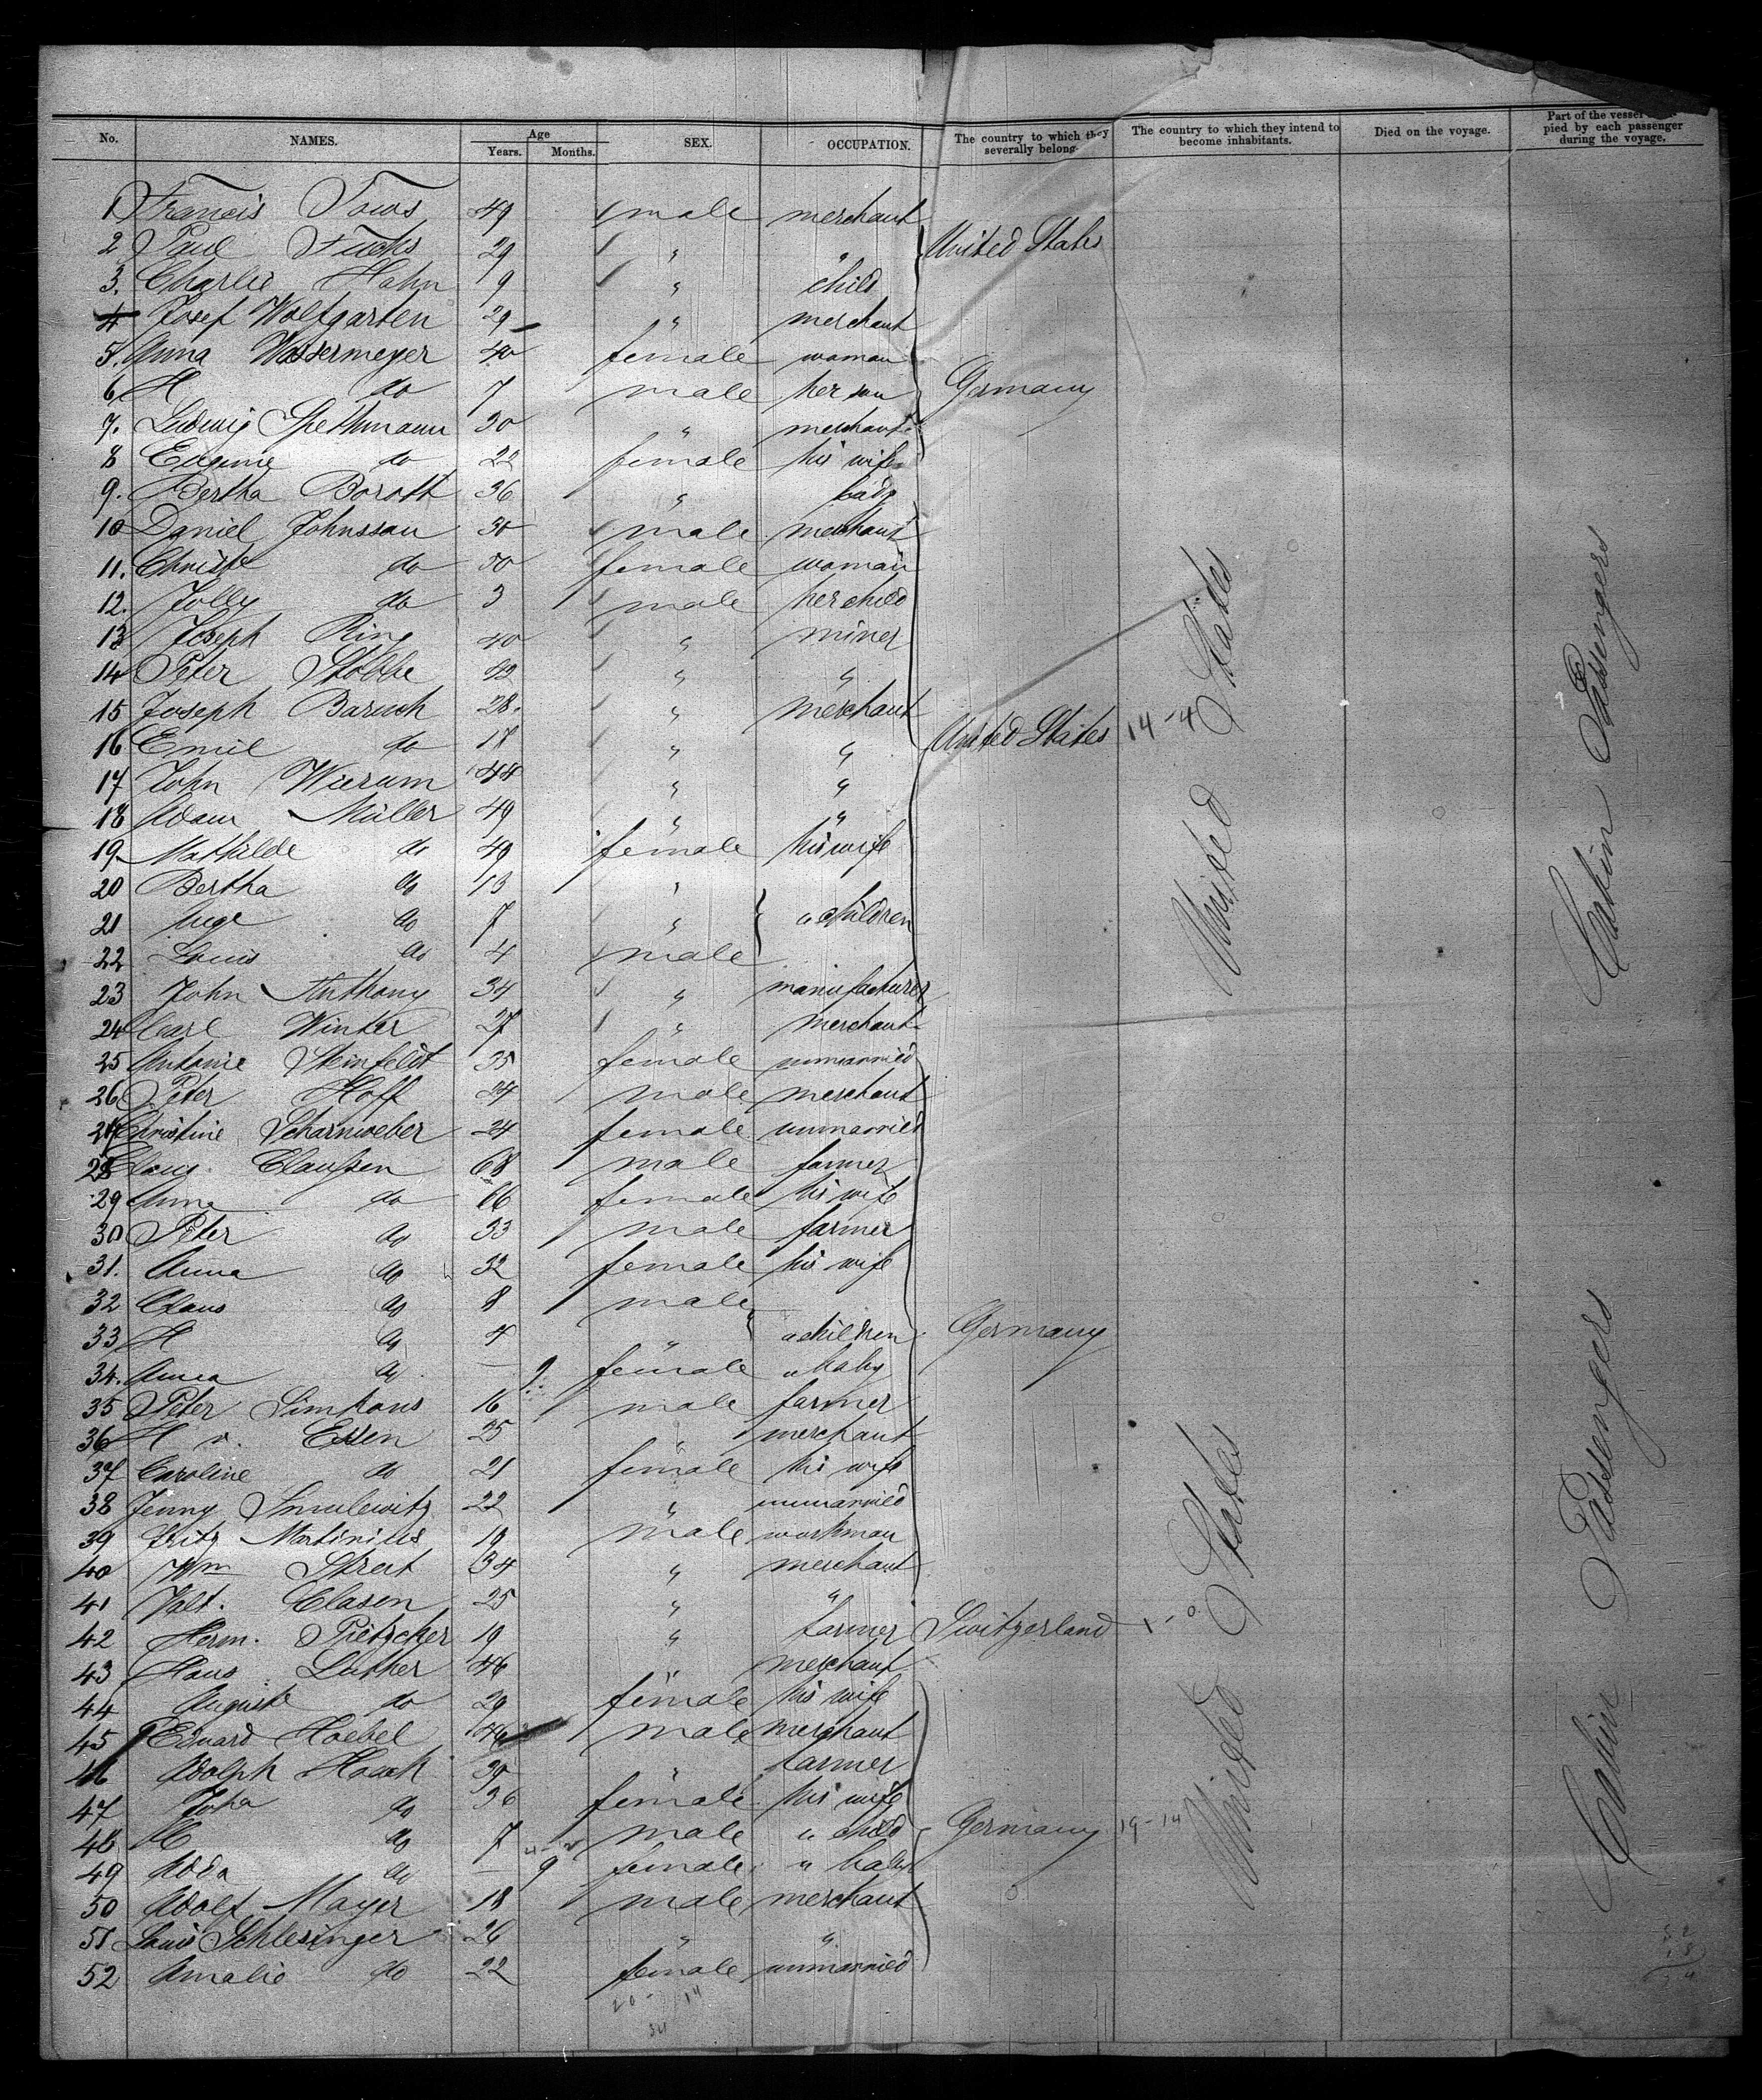 No. NAMES. Age Years. Months. SEX. OCCUPATION. The country to which they severally belong. The country to which they intend to become inhabitants. Died on the voyage. Part of the vessel pied by each passenger during the voyage.
1 Francis 49 male merchant
2 Paul Fuchs 29 " " United States
3. Charlie Hahn 9 " child
4 Josef Wolfgarten 29 " merchant
5. Anna Wassermeyer 40 female woman
6 H do 7 male her son Germany
7. Ludwig Spethmann 30 " merchant
8 Eugenie do 22 female his wife
9. Bertha Borott 36 " lady
10 Daniel Johnssau 30 male merchant
11. do 50 female woman
12. Jolly do 3 male her child
13 Joseph Ring 40 " miner
14 Peter Stobbe 42 " "
15 Joseph Baruch 28. " merchant
16 Emil do 18 " " United States 14-4
17 John Wierum 44 " "
18 Adam Müller 49 " "
19. Mathilde do 49 female his wife
20 Bertha do 13 "
21 do 7 " " children
22 Louis do 4 male
23 John Anthony 34 " manufacturer
24 Carl Winter 27 " merchant
25 Antonie Steinfeldt 35 female unmarried
26 Peter Hoff 24 male merchant
27 Christine Scharnweber 24 female unmarried
28 Claus Claussen 68 male farmer
29 Anna do 66 female his wife
30 Peter do 33 male farmer
31. Anna do 32 female his wife
32 Claus do 8 male
33 H do 4 " " children Germany
34. Anna do — 9 female " baby
35 Peter Simkons 16 male farmer
36 H v. Essen 25 " merchant
37 Caroline do 21 female his wife
38 Jenny Smulewitz 22 " unmarried
39 Fritz Martinius 19 male workman
40 Wm Street 34 " merchant
41 Valt. Clasen 25 " "
42 Herm. Pietzcker 19 " farmer Switzerland 1-0
43 Hans Luther 46 " merchant
44 Auguste do 29 female his wife
45 Eduard Hoebel 46 male merchant
46 Adolph Haack 39 " farmer
47 Joha do 36 female his wife
48 H do 7 male " child Germany 19-14
49 Adda do — 9 female " baby
50 Adolf Mayer 18 male merchant
51 Louis Schlesinger 26 " "
52 Amalie do 22 female unmarried
20 - 14
34
United States
United States
Cabin Passengers
Cabin Passengers
52
18
34